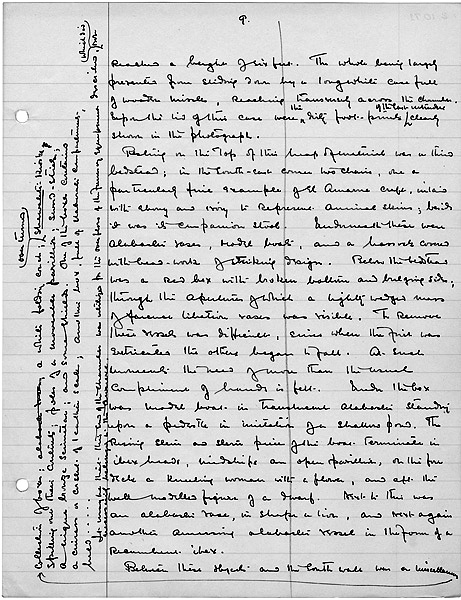 9.
reached a height of six feet. The whole being largely
prevented from sliding down by a long white case full
of wooden models, reaching transversely across the chamber.
Upon the lid of this case were the dirty foot-prints of the last intruders clearly
shown in the photograph.
Resting on the top of this heap of material was a third
bedstead; in the South-east corner two chairs, one a
particularly fine example of El Amarna craft, inlaid
with ebony and ivory to represent animal skins; beside
it was its companion stool. Underneath these were
alabaster vases, model boats, and a hassock covered
with bead-work of striking design. Below the bedstead
was a red box with broken bottom and bulging side,
through the aperture of which a tightly wedged mass
of faience libation vases was visible. To remove
these vessels was difficult, since when the first was
extricated the others began to fall. At such
moments the need of more than the usual
compliment of hands is felt. Under the box
was model boat in translucent alabaster standing
upon a pedestal in imitation of a shallow pond. The
rising stem and stern piece of the boat terminate in
ibex heads, midships an open pavilion, on the fore
deck a kneeling woman with a flower, and aft the
well modelled figure of a dwarf. Next to this was
an alabaster vase, in shape a lion, and next again
another amusing alabaster vessel in the form of a
recumbent ibex.
Between these objects and the South wall was a miscellaneous
collection of boxes;
a unique bronze scimitar; and some shields. One of the boxes contained
a cuirass or corslet of leather scale; another box, full of